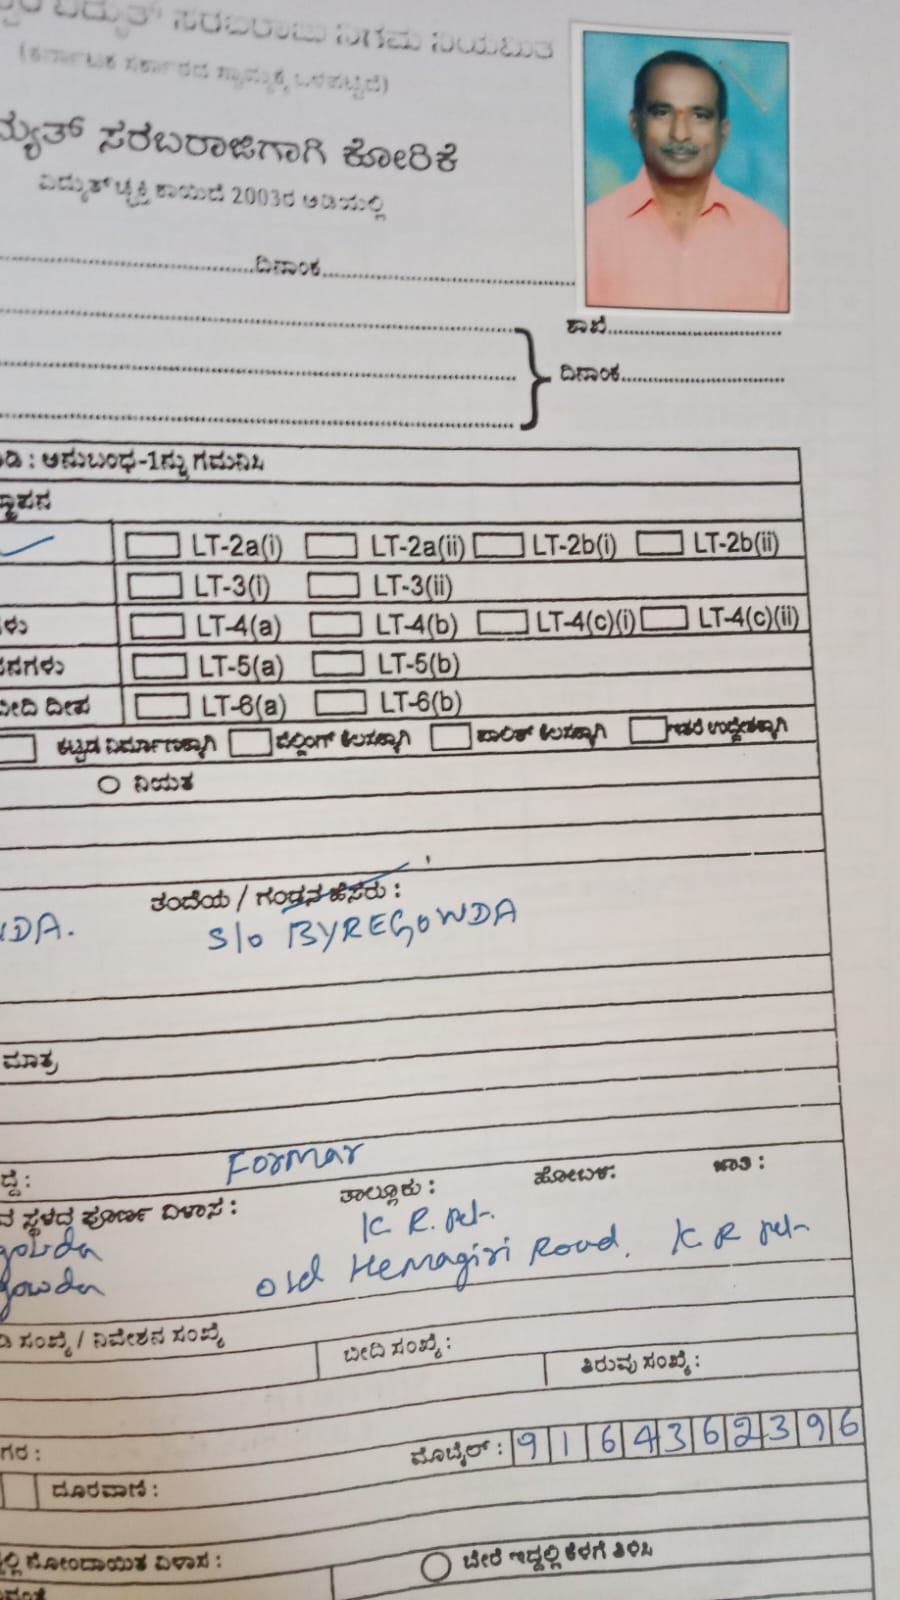 ವಿದ್ಯುತ್ ಸರಬರಾಜು ನಿಗಮ ನಿಯಮಿತ
(ಕರ್ನಾಟಕ ಸರ್ಕಾರದ ಸ್ವಾಮ್ಯಕ್ಕೆ ಒಳಪಟ್ಟಿದೆ)
ಸರಬರಾಜಿಗಾಗಿ ಕೋರಿಕೆ
ವಿದ್ಯುಚ್ಛಕ್ತಿ ಕಾಯಿದೆ 2003ರ ಅಡಿಯಲ್ಲಿ
ದಿನಾಂಕ
ಶಾಖೆ
ದಿನಾಂಕ
: ಅನುಬಂಧ-1ನ್ನು ಗಮನಿಸಿ
LT-2a(i) LT-2a(ii) LT-2b(i) LT-2b(ii)
LT-3(i) LT-3(ii)
LT-4(a) LT-4(b) LT-4(c)(i) LT-4(c)(ii)
LT-5(a) LT-5(b)
ದೀಪ LT-6(a) LT-6(b)
ಕಟ್ಟಡ ನಿರ್ಮಾಣಕ್ಕಾಗಿ ವೆಲ್ಡಿಂಗ್ ಕೆಲಸಕ್ಕಾಗಿ ಪಾಲಿಶ್ ಕೆಲಸಕ್ಕಾಗಿ ಇತರೆ ಉದ್ದೇಶಕ್ಕಾಗಿ
ನಿಯತ
ತಂದೆಯ / ಗಂಡನ ಹೆಸರು :
S/o BYREGOWDA
ಮಾತ್ರ
Formar
ಸ್ಥಳದ ಪೂರ್ಣ ವಿಳಾಸ : ತಾಲ್ಲೂಕು : ಹೋಬಳಿ: ಜಾತಿ :
K R. pet.
Old Hemagiri Road. K R pet
ಸಂಖ್ಯೆ / ನಿವೇಶನ ಸಂಖ್ಯೆ ಬೀದಿ ಸಂಖ್ಯೆ : ತಿರುವು ಸಂಖ್ಯೆ :
ಮೊಬೈಲ್ : 9164362396
ದೂರವಾಣಿ :
ನೋಂದಾಯಿತ ವಿಳಾಸ : ಬೇರೆ ಇದ್ದಲ್ಲಿ ಕೆಳಗೆ ತಿಳಿಸಿ